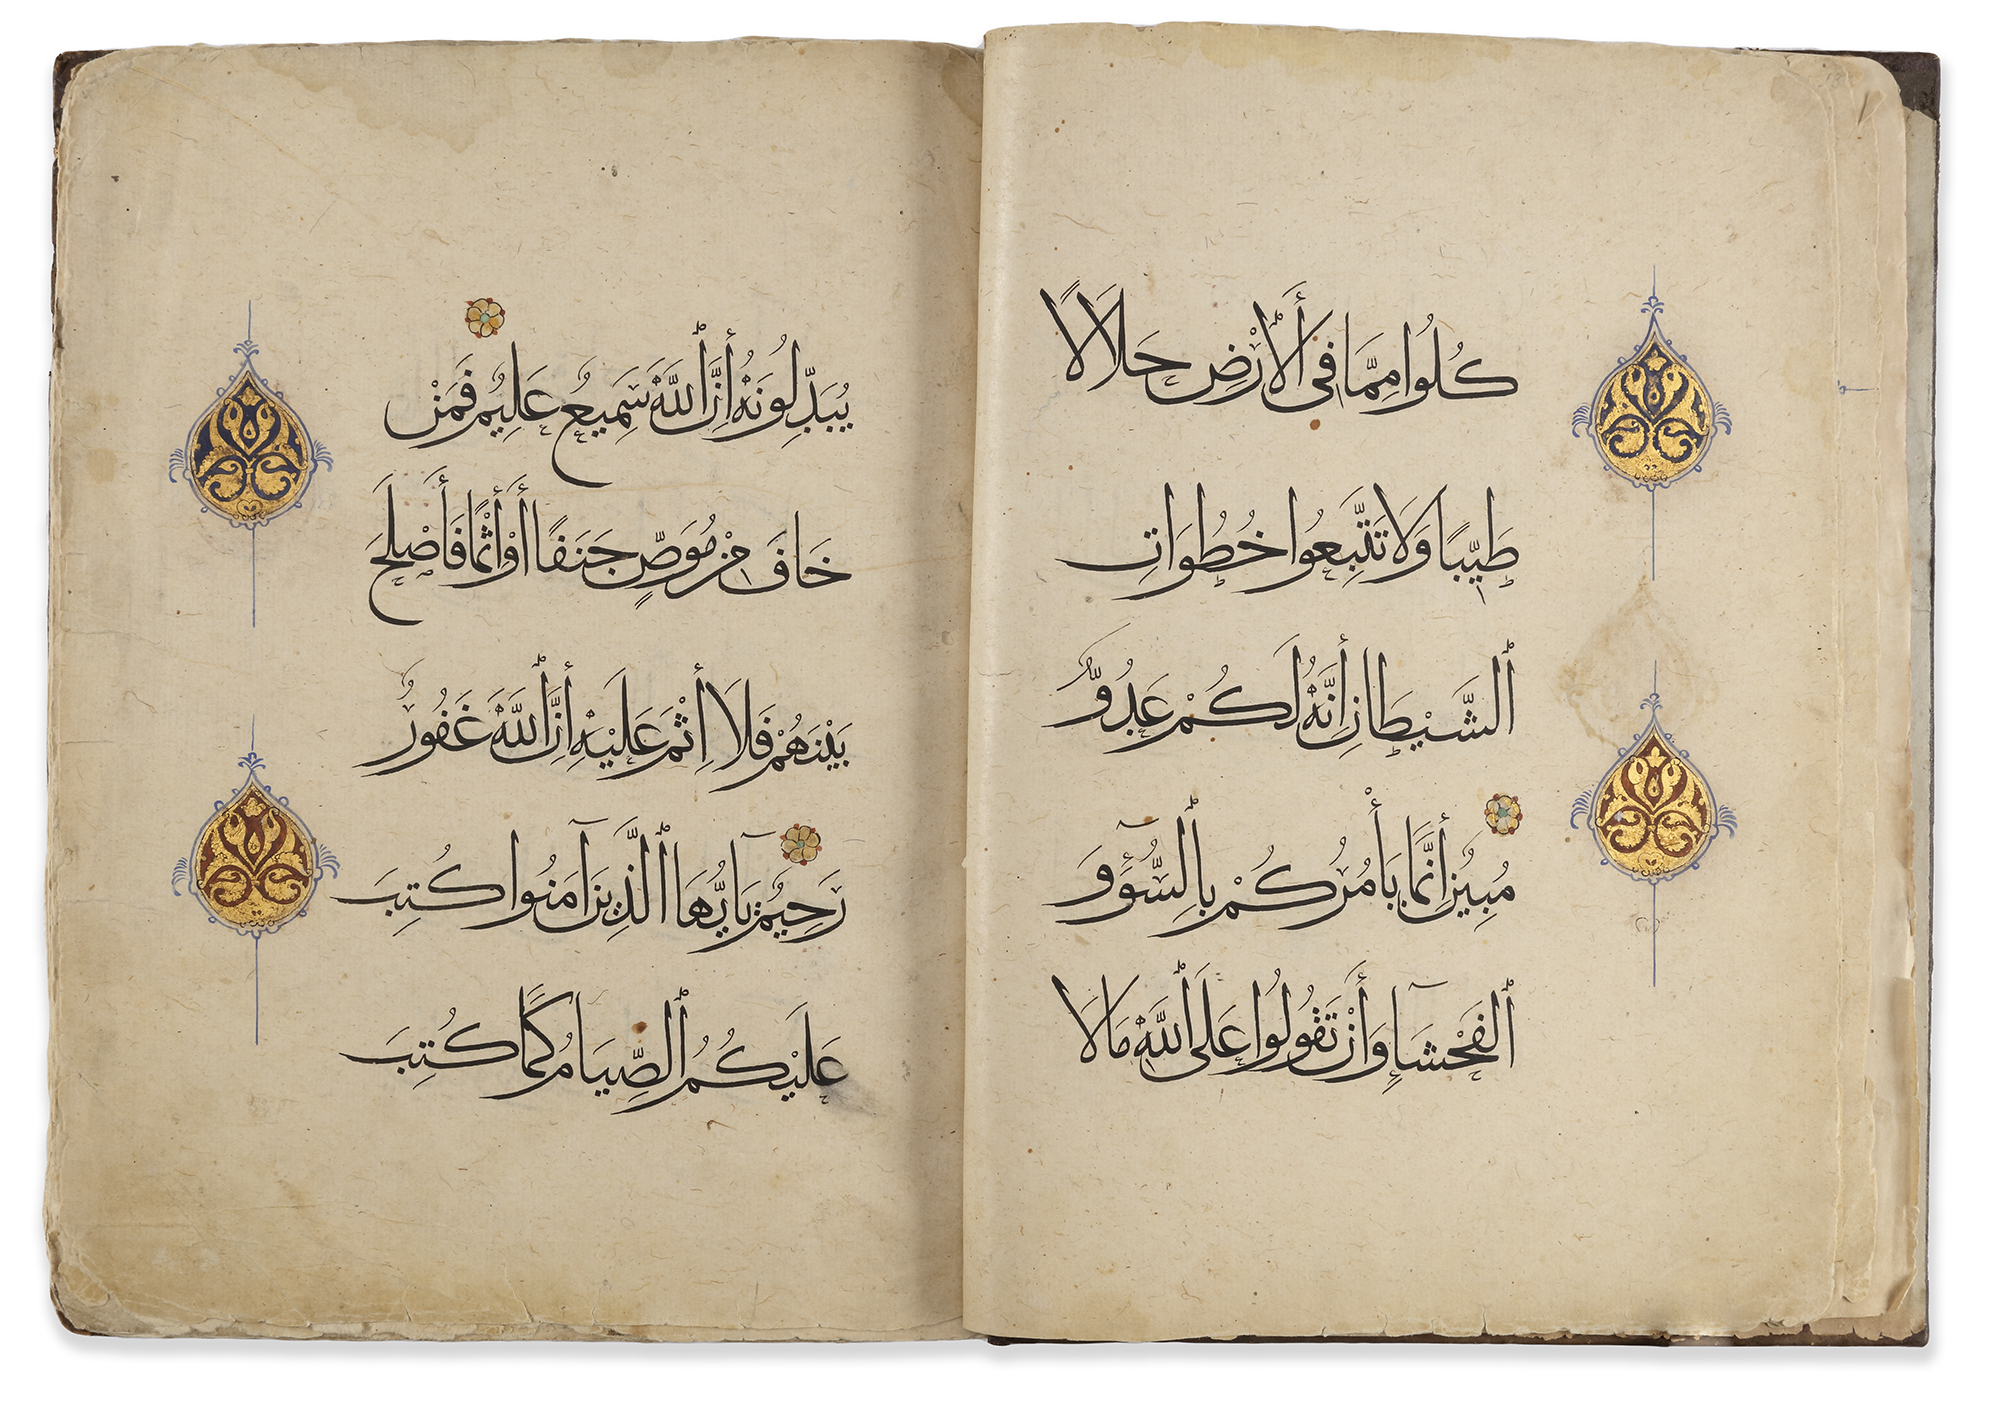 كُلُوا مِمَّا فِى ٱلْأَرْضِ حَلَالًا
طَيِّبًا وَلَا تَتَّبِعُوا خُطُوَاتِ
ٱلشَّيْطَانِ إِنَّهُ لَكُمْ عَدُوٌّ
مُبِينٌ إِنَّمَا يَأْمُرُكُمْ بِالسُّوٓءِ وَ
ٱلْفَحْشَآءِ وَأَنْ تَقُولُوا عَلَى ٱللَّهِ مَا لَا
يُبَدِّلُونَهُ إِنَّ ٱللَّهَ سَمِيعٌ عَلِيمٌ فَمَنْ
خَافَ مِنْ مُوَصٍّ جَنَفًا أَوْ إِثْمًا فَأَصْلَحَ
بَيْنَهُمْ فَلَا إِثْمَ عَلَيْهِ إِنَّ ٱللَّهَ غَفُورٌ
رَحِيمٌ يَآ أَيُّهَا ٱلَّذِينَ آمَنُوا كُتِبَ
عَلَيْكُمُ ٱلصِّيَامُ كَمَا كُتِبَ